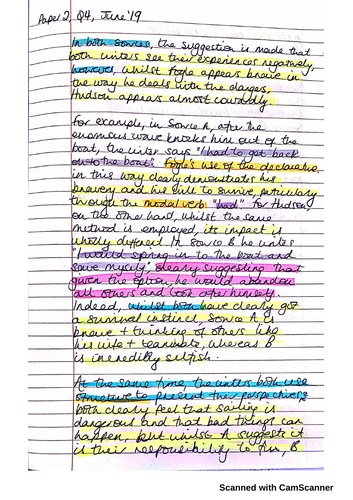 Paper 2, Q4, June '19
In both Sources, the suggestion is made that
both writers see their experiences negatively,
however, whilst Fogle appears brave in
the way he deals with the danger,
Hudson appears almost cowardly.
For example, in Source A, after the
enormous wave knocks him out of the
boat, the writer says "I had to get back
onto the boat". Fogle's use of the declarative
in this way clearly demonstrates his
bravery and his will to survive, particulary
through the modal verb "had". For Hudson
on the other hand, whilst the same
method is employed, its impact is
wholly different. In Source B he writes
"I would spring in to the boat and
save myself", clearly suggesting that
given the option, he would abandon
all others and look after himself.
Indeed, whilst both have clearly got
a survival instinct, Source A is
brave + thinking of others like
his wife + teammate, whereas B
is incredibly selfish.
At the same time, the writers both use
structure to present their perspectives;
both clearly feel that sailing is
dangerous and that bad things can
happen, but whilst A suggests it
is their responsibility to , B
Scanned with CamScanner